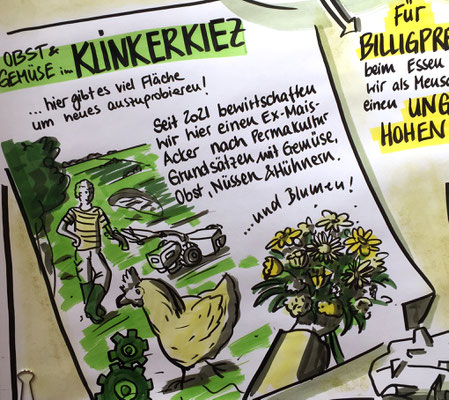 OBST &
GEMÜSE im KLINKERKIEZ
...hier gibt es viel Fläche
um neues auszuprobieren!
Seit 2021 bewirtschaften
wir hier einen Ex-Mais-
Acker nach Permakultur
Grundsätzen mit Gemüse,
Obst, Nüssen & Hühnern.
...und Blumen!
FÜR
BILLIGPRE
beim Essen
wir als Mensc
einen UNG
HOHEN